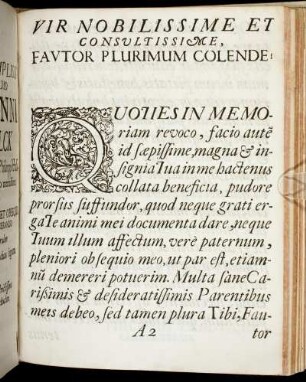 VIR NOBILISSIME ET
CONSULTISSIME,
FAVTOR PLURIMUM COLENDE:
QUOTIES IN MEMO-
riam revoco, facio autē
id sæpissime, magna & in-
signia Tua in me hactenus
collata beneficia, pudore
prorsus suffundor, quod neque grati er-
ga Te animi mei documenta dare, neque
Tuum illum affectum, verè paternum,
pleniori obsequio meo, ut par est, etiam-
nū demereri potuerim. Multa sanè Ca-
rissimis & desideratissimis Parentibus
meis debeo, sed tamen plura Tibi, Fau-
A 2 tor